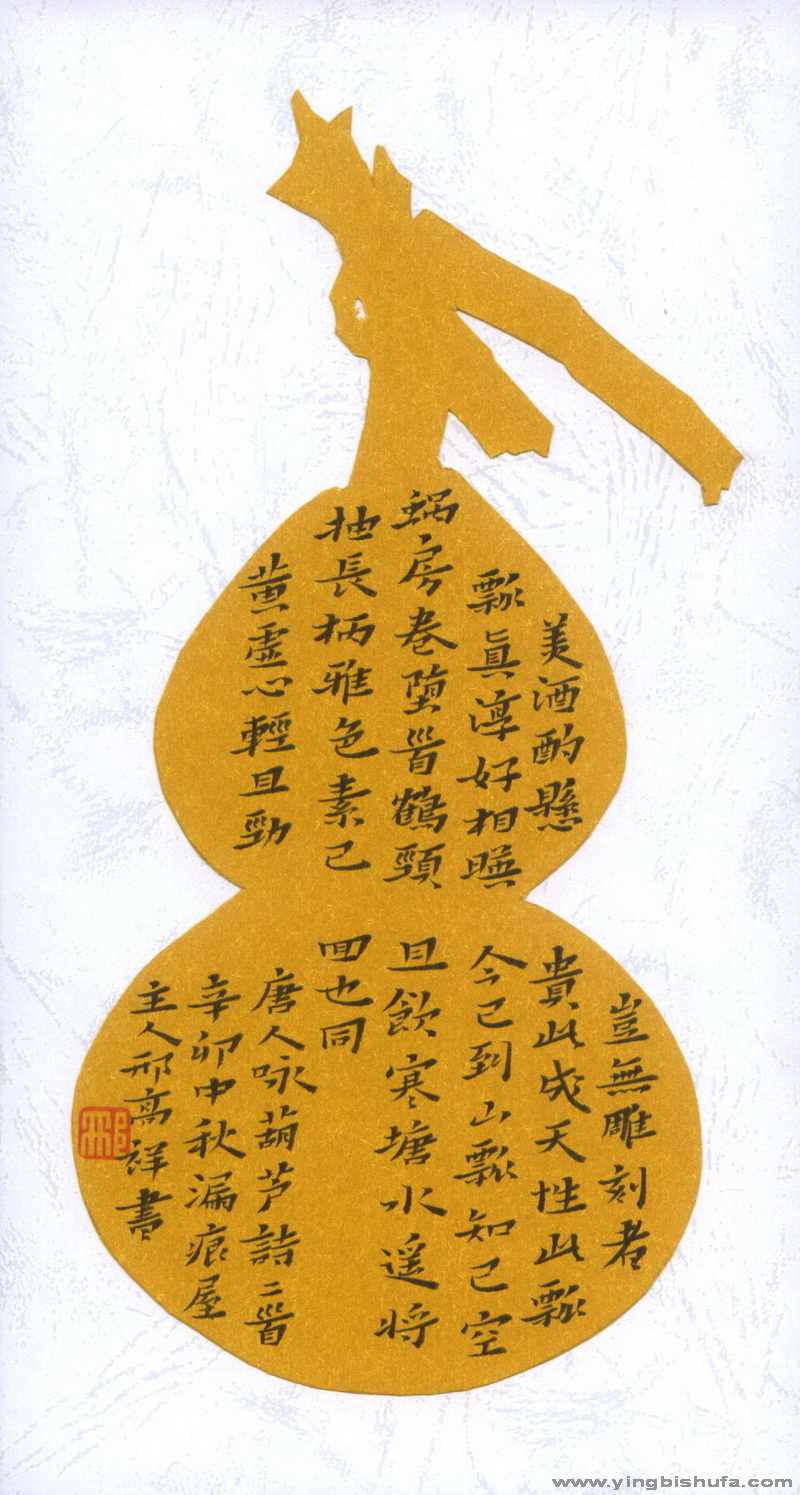 美酒酌懸
瓢真淳好相暎
蝸房卷墮首鶴頸
抽長柄雅色素已
黄虛心輕且勁
豈無雕刻者
貴此成天性此瓢
今已到山瓢知已空
且飲寒塘水遥将
回也同
唐人咏葫芦詩二首
辛卯中秋漏痕屋
主人邢高祥書
www.yingbishufa.com